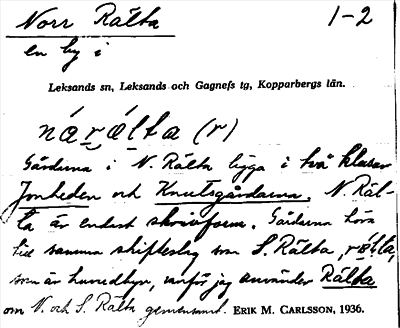 Norr Rälta 1-2
en by i
Leksands sn, Leksands och Gagnefs tg, Kopparbergs län.
nárǽlta (r)
Gårdarna i N. Rälta ligga i två klasar
Jonheden och Knutsgårdarna. N. Räl-
ta är endast skrivform. Gårdarna höra
till samma skifteslag som S. Rälta,
som är huvudbyn, varför jag använder Rälta
om N. och S. Rälta gemensamt. ERIK M. CARLSSON, 1936.